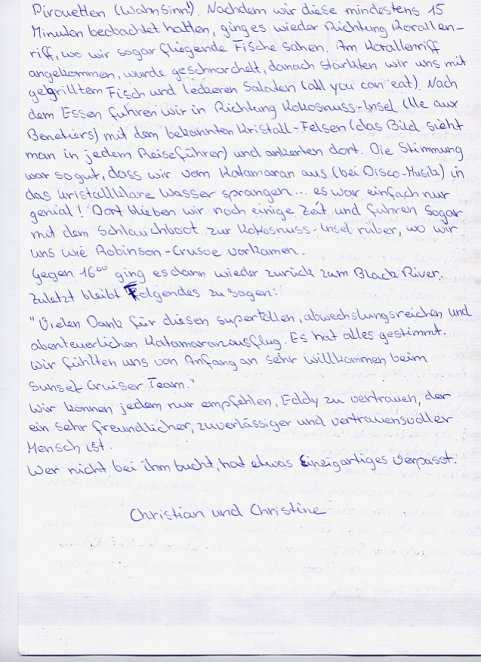 Pirouetten (Wahnsinn!). Nachdem wir diese mindestens 15
Minuten beobachtet hatten, ging es wieder Richtung Korallen-
riff, wo wir sogar fliegende Fische sahen. Am Korallenriff
angekommen, wurde geschnorchelt, danach stärkten wir uns mit
gegrilltem Fisch und leckeren Salaten (all you can eat). Nach
dem Essen fuhren wir in Richtung Kokosnuss-Insel (Ile aux
Benetiers) mit dem bekannten Kristall-Felsen (das Bild sieht
man in jedem Reiseführer) und ankerten dort. Die Stimmung
war so gut, dass wir vom Katamaran aus (bei Disco-Musik) in
das kristallklare Wasser sprangen... es war einfach nur
genial! Dort blieben wir noch einige Zeit und fuhren sogar
mit dem Schlauchboot zur Kokosnuss-Insel rüber, wo wir
uns wie Robinson-Crusoe vorkamen.
Gegen 16⁰⁰ ging es dann wieder zurück zum Black River.
Zuletzt bleibt Folgendes zu sagen:
"Vielen Dank für diesen supertollen, abwechslungsreichen und
abenteuerlichen Katamaranausflug. Es hat alles gestimmt.
Wir fühlten uns von Anfang an sehr willkommen beim
Sunset-Cruiser Team."
Wir können jedem nur empfehlen, Eddy zu vertrauen, der
ein sehr freundlicher, zuverlässiger und vertrauensvoller
Mensch ist.
Wer nicht bei ihm bucht, hat etwas Einzigartiges verpasst.
Christian und Christine